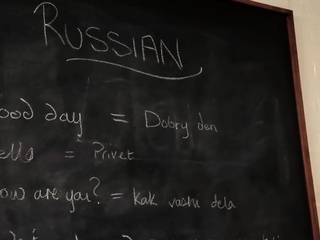 RUSSIAN
ood day = Dobry den
ello = Privet
ow are you? = Kak vashi dela